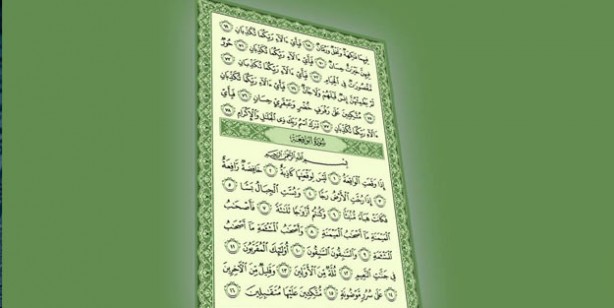 فِيهِمَا فَٰكِهَةٌ وَنَخْلٌ وَرُمَّانٌ ٦٨ فَبِأَيِّ ءَالَآءِ رَبِّكُمَا تُكَذِّبَانِ ٦٩
فِيهِنَّ خَيْرَٰتٌ حِسَانٌ ٧٠ فَبِأَيِّ ءَالَآءِ رَبِّكُمَا تُكَذِّبَانِ ٧١ حُورٌ
مَّقْصُورَٰتٌ فِي ٱلْخِيَامِ ٧٢ فَبِأَيِّ ءَالَآءِ رَبِّكُمَا تُكَذِّبَانِ ٧٣
لَمْ يَطْمِثْهُنَّ إِنسٌ قَبْلَهُمْ وَلَا جَآنٌّ ٧٤ فَبِأَيِّ ءَالَآءِ رَبِّكُمَا تُكَذِّبَانِ
٧٥ مُتَّكِـِٔينَ عَلَىٰ رَفْرَفٍ خُضْرٍ وَعَبْقَرِيٍّ حِسَانٍ ٧٦ فَبِأَيِّ
ءَالَآءِ رَبِّكُمَا تُكَذِّبَانِ ٧٧ تَبَٰرَكَ ٱسْمُ رَبِّكَ ذِي ٱلْجَلَٰلِ وَٱلْإِكْرَامِ ٧٨
سُورَةُ الوَاقِعَةِ
بِسْمِ ٱللَّهِ ٱلرَّحْمَٰنِ ٱلرَّحِيمِ
إِذَا وَقَعَتِ ٱلْوَاقِعَةُ ١ لَيْسَ لِوَقْعَتِهَا كَاذِبَةٌ ٢ خَافِضَةٌ رَّافِعَةٌ
٣ إِذَا رُجَّتِ ٱلْأَرْضُ رَجًّا ٤ وَبُسَّتِ ٱلْجِبَالُ بَسًّا ٥
فَكَانَتْ هَبَآءً مُّنۢبَثًّا ٦ وَكُنتُمْ أَزْوَٰجًا ثَلَٰثَةً ٧ فَأَصْحَٰبُ
ٱلْمَيْمَنَةِ مَآ أَصْحَٰبُ ٱلْمَيْمَنَةِ ٨ وَأَصْحَٰبُ ٱلْمَشْـَٔمَةِ مَآ أَصْحَٰبُ
ٱلْمَشْـَٔمَةِ ٩ وَٱلسَّٰبِقُونَ ٱلسَّٰبِقُونَ ١٠ أُو۟لَٰٓئِكَ ٱلْمُقَرَّبُونَ ١١
فِي جَنَّٰتِ ٱلنَّعِيمِ ١٢ ثُلَّةٌ مِّنَ ٱلْأَوَّلِينَ ١٣ وَقَلِيلٌ مِّنَ ٱلْأٓخِرِينَ
١٤ عَلَىٰ سُرُرٍ مَّوْضُونَةٍ ١٥ مُّتَّكِـِٔينَ عَلَيْهَا مُتَقَٰبِلِينَ ١٦